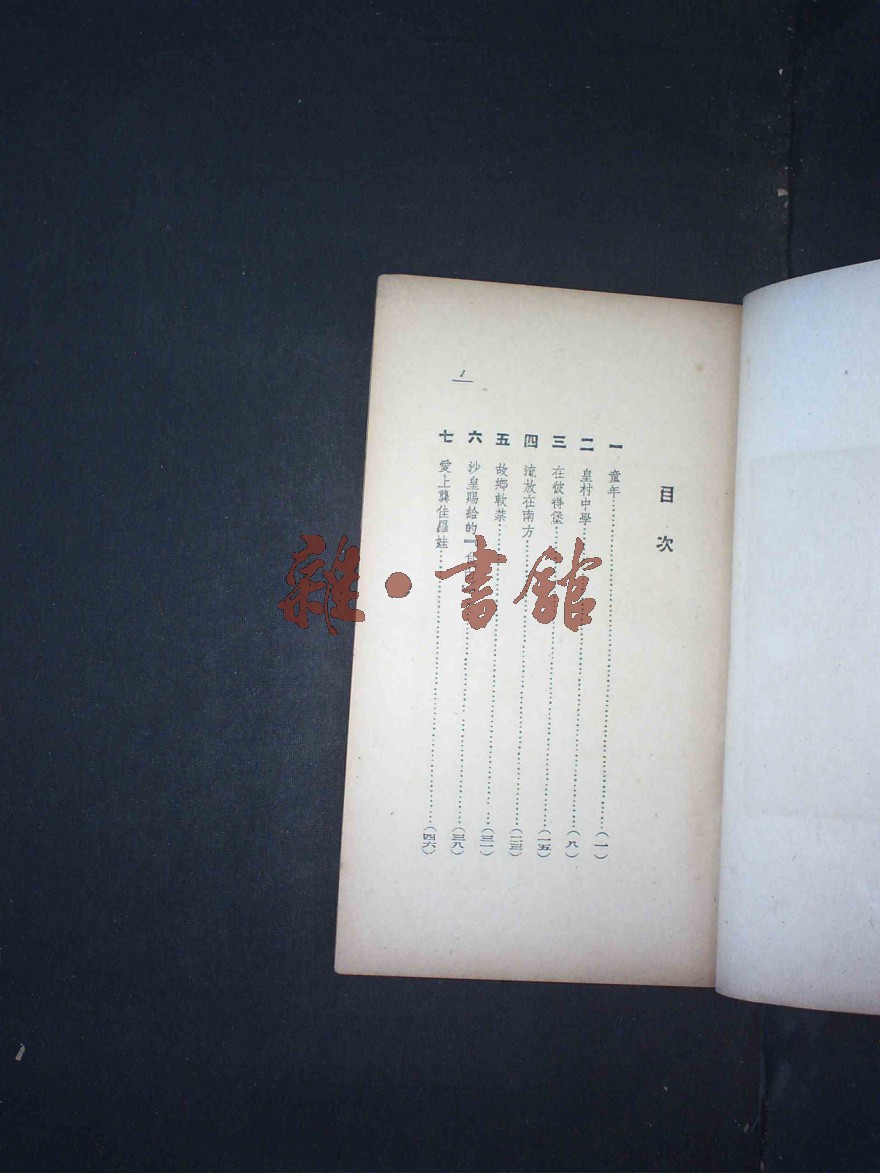 目次
一 童年……(一)
二 皇村中學……(八)
三 在彼得堡……(一五)
四 流放在南方……(二三)
五 故鄉軟禁……(三一)
六 沙皇賜給的「……(三八)
七 愛上龔佳羅娃……(四六)
1
雜·書館